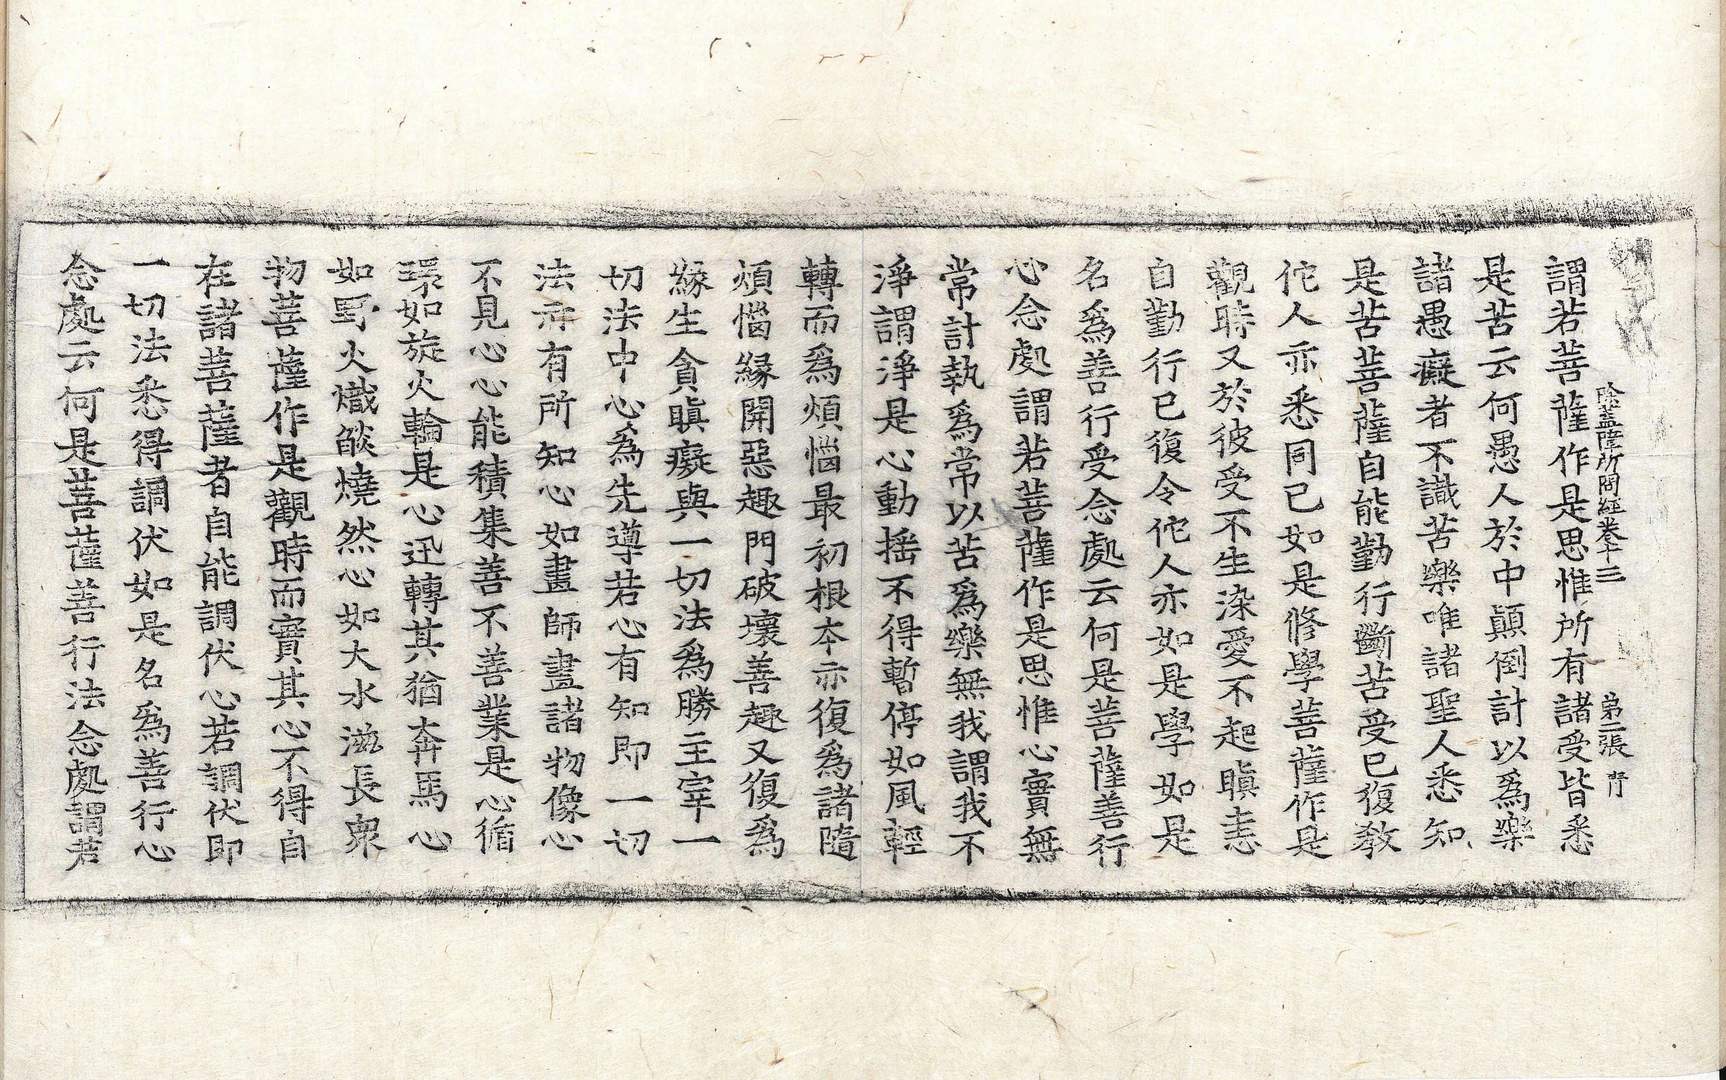 除蓋障所問經卷十三　第二張　背
謂若菩薩作是思惟所有諸受皆悉
是苦云何愚人於中顛倒計以爲樂
諸愚癡者不識苦樂唯諸聖人悉知
是苦菩薩自能勤行斷苦受已復教
佗人亦悉同已如是修學菩薩作是
觀時又於彼受不生染愛不起瞋恚
自勤行已復令佗人亦如是學如是
名爲善行受念處云何是菩薩善行
心念處謂若菩薩作是思惟心實無
常計執爲常以苦爲樂無我謂我不
淨謂淨是心動搖不得暫停如風輕
轉而爲煩惱最初根本亦復爲諸隨
煩惱緣開惡趣門破壞善趣又復爲
緣生貪瞋癡與一切法爲勝主宰一
切法中心爲先導若心有知即一切
法而有所知心如畫師畫諸物像心
不見心心能積集善不善業是心循
環如旋火輪是心迅轉其猶奔馬心
如野火熾燄燒然心如大水滋長衆
物菩薩作是觀時而實其心不得自
在諸菩薩者自能調伏心若調伏即
一切法悉得調伏如是名爲善行心
念處云何是菩薩善行法念處謂若